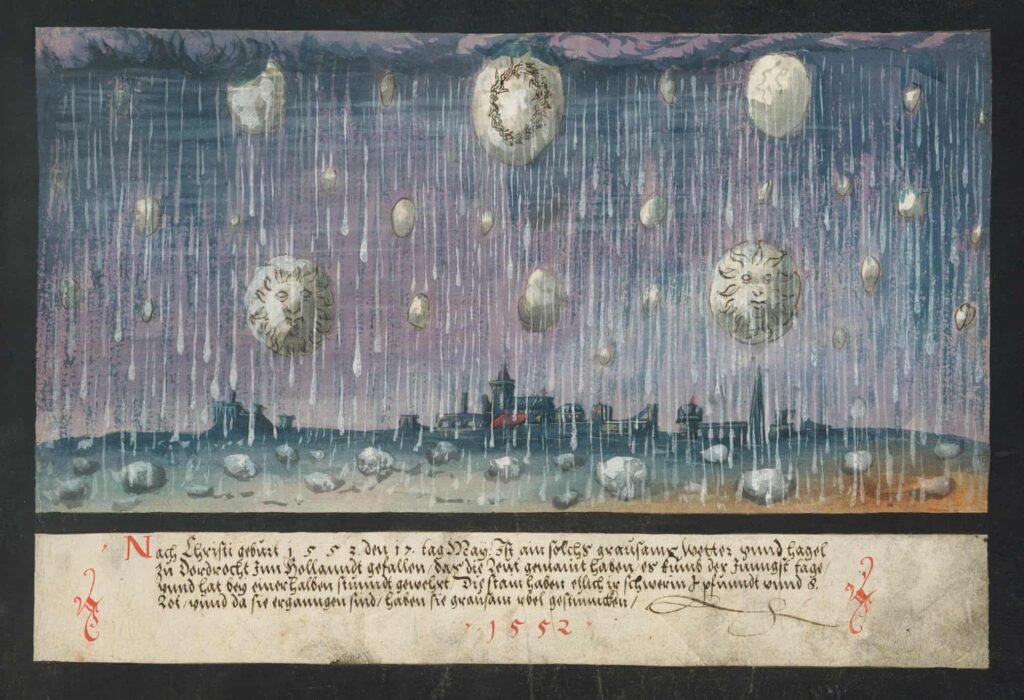 Nach Christi geburt 1 5 5 2 den 17 tag May Ist ain solchs grausams wetter vnnd hagel
zu Dordrecht Inn Hollanndt gefallen / das die Leut gemaint haben / es kumb der Jüngst tage /
vnnd hat bey einer halben stunndt gewehrt Die stain haben etlich ir schwerin pfunndt vnnd 8.
Lot / vnnd da sie erganngen sind / haben sie grausam vbel gestunncken /
1 5 5 2